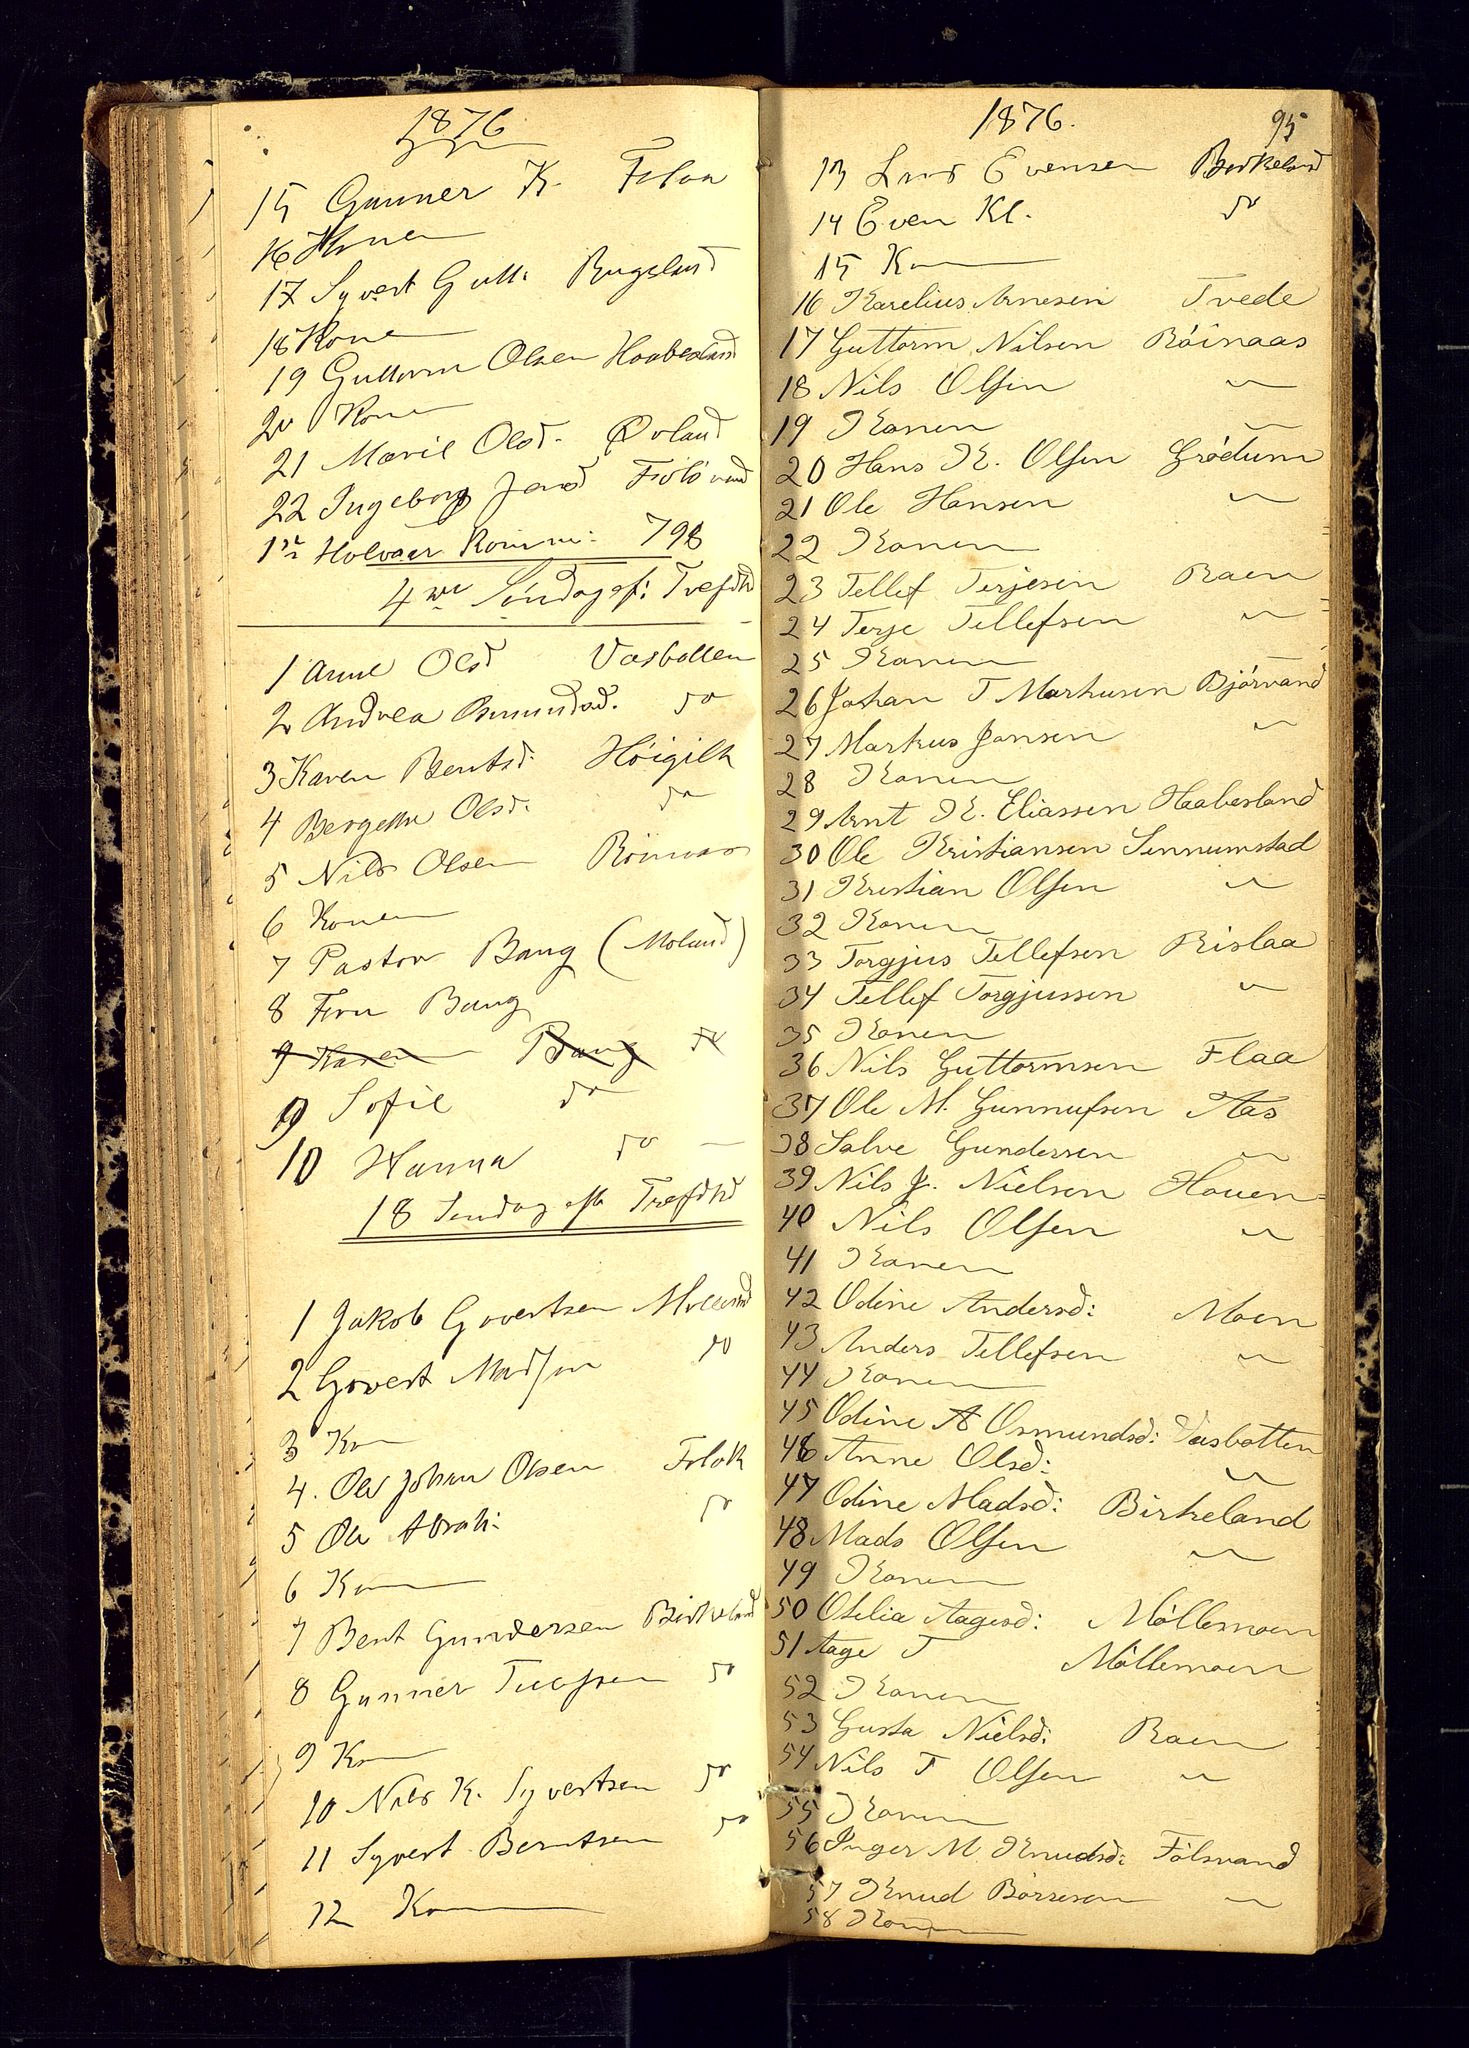 1876
15 Gunner K. Folaa
16 Konen
17 Syvert Gutt: Bugeland
18 Konen
19 Guttorm Olsen Haabesland
20 Konen
21 Marie Olsd. Øvland
22 Ingeborg Jensd Fiölsvand
Holvaer Komm: 798
4de Söndag ef: Trefdhd
1 Anne Olsd Vasbotten
2 Andrea Osmundsd. do
3 Karen Bentsd: Höigilt
4 Bergethe Olsd. do
5 Nils Olsen Röinaas
6 Konen
7 Pastor Bang (Moland)
8 Fru Bang
9 Karen Bang do
9 Sofie do
10 Hanna do —
18 Sondag eft Trefdhd
1 Jakob Govertsen Moland
2 Govert Madsen do
3 Kon
4. Ole Johan Olsen Folak
5 Ole Abrah: do
6 Kon
7 Bent Gundersen Birkeland
8 Gunner do
9 Kon
10 Nils K. Syvertsen do
11 Syvert Berntsen do
12 Kon
1876. 95
13 Lars Evensen Birkeland
14 Even Kl. do
15 Kon
16 Karelius Arnesen Tvede
17 Guttorm Nilsen Röinaas
18 Nils Olsen "
19 Konen "
20 Hans K. Olsen Grödum
21 Ole Hansen "
22 Konen
23 Tellef Terjesen Raen
24 Terje Tellefsen "
25 Konen
26 Johan T Markusen Bjórvand
27 Markus Jansen "
28 Konen
29 Arnt K. Eliassen Haabesland
30 Ole Kristiansen Sennumstad
31 Kristian Olsen "
32 Konen
33 Torgjus Tellefsen Rislaa
34 Tellef Torgjussen "
35 Konen
36 Nils Guttormsen Flaa
37 Ole M. Gunnufsen Aas
38 Salve Gundersen "
39 Nils J. Nielsen Houen
40 Nils Olsen "
41 Konen
42 Odine Andersd: Moen
43 Anders Tellefsen "
44 Konen
45 Odine A Osmundsd: Vasbotten
46 Anne Olsd: "
47 Odine Madsd: Birkeland
48 Mads Olsen "
49 Konen
50 Otilia Aagesd: Möllemoen
51 Aage T Möllemoen
52 Konen
53 Gusta Nielsd: Raen
54 Nils T Olsen "
55 Konen
56 Inger M. Knudsd: Fólsvand
57 Knud Börresen "
58 Konen